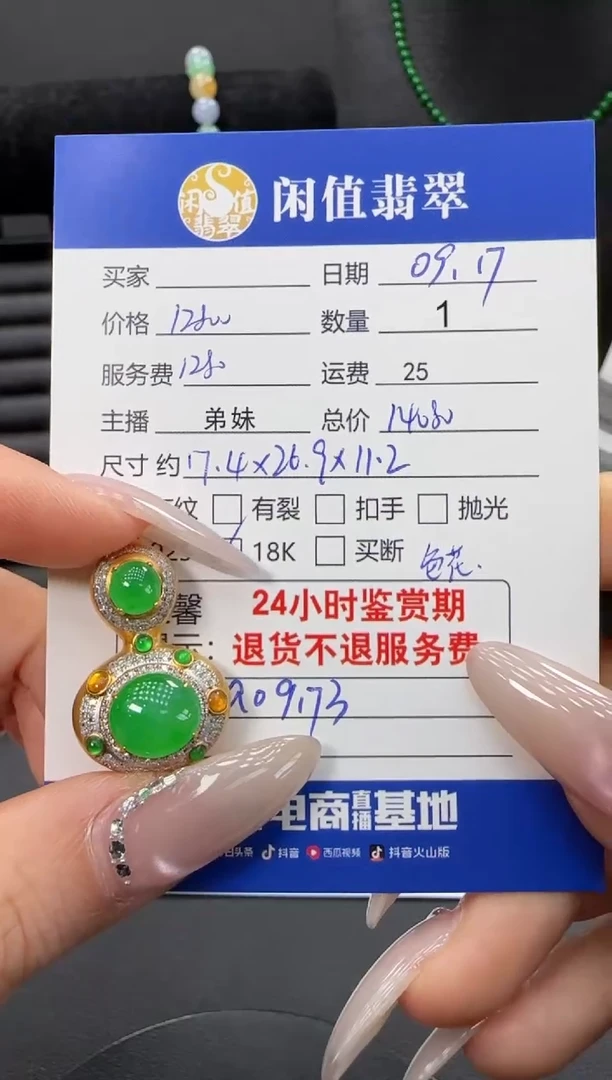 闲值翡翠
闲值翡翠
买家 日期 09.17
价格 12800 数量 1
服务费 1280 运费 25
主播 弟妹 总价 14080
尺寸 约 17.4×26.9×11.2
纹 □ 有裂 □ 扣手 □ 抛光
18K □ 买断 色花.
馨 24小时鉴赏期
示: 退货不退服务费
20973
电商直播基地
头条 抖音 西瓜视频 抖音火山版